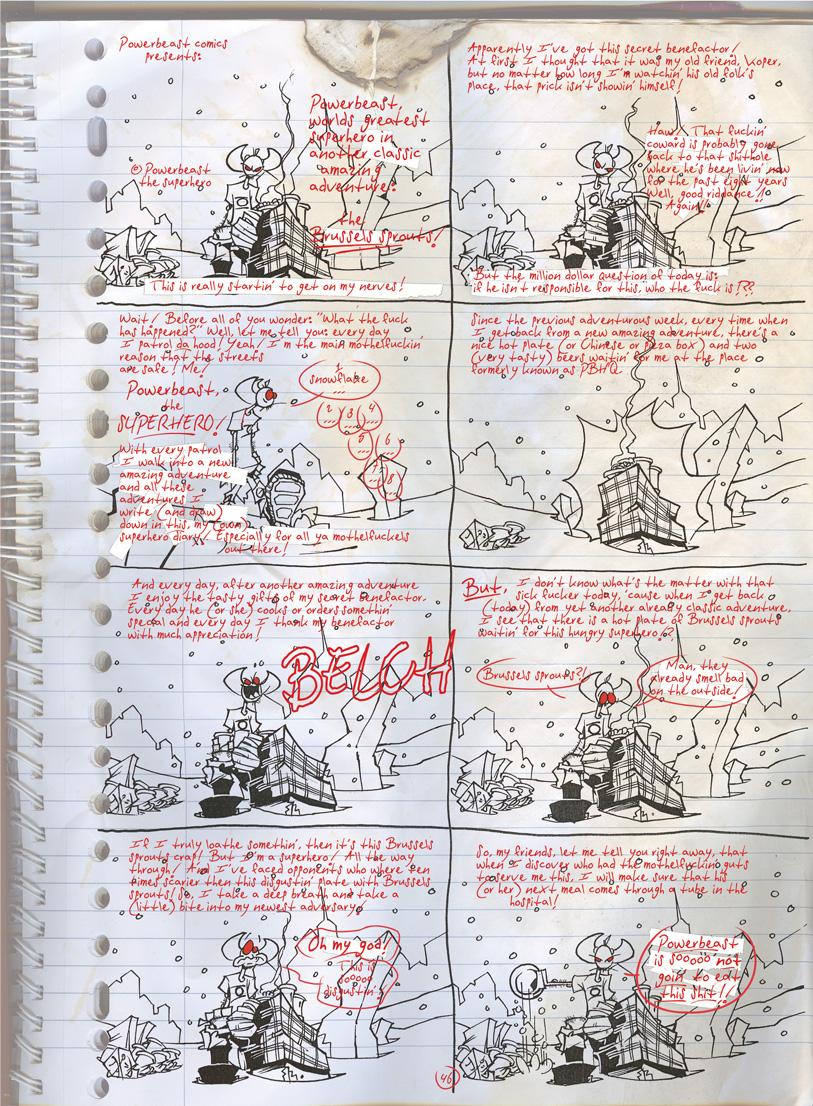 Powerbeast comics
presents:
Powerbeast,
worlds greatest
superhero in
another classic
amazing
adventure:
the
Brussels sprouts!
@ Powerbeast
the superhero
This is really startin' to get on my nerves!
Apparently I've got this secret benefactor!
At first I thought that it was my old friend, Koper,
but no matter how long I'm watchin' his old folk's
place, that prick isn't showin' himself!
Haw! That fuckin'
coward is probably gone
back to that shithole
where he's been livin' now
for the past eight years
Well, good riddance!
Again!!
But the million dollar question of today is:
if he isn't responsible for this, who the fuck is!??
Wait! Before all of you wonder: "What the fuck
has happened?" Well, let me tell you: every day
I patrol da hood! Yeah! I'm the main mothelfuckin'
reason that the streets
are safe! Me!
Powerbeast,
the
SUPERHERO!
1
snowflake
...
2 3 4
5 6
8
With every patrol
I walk into a new
amazing adventure
and all these
adventures I
write (and draw)
down in this, my (own)
superhero diary! Especially for all ya mothelfuckels
out there!
Since the previous adventurous week, every time when
I getback from a new amazing adventure, there's a
nice hot plate (or Chinese or pizza box) and two
(very tasty) beers waitin' for me at the place
formerly known as PBHQ.
And every day, after another amazing adventure
I enjoy the tasty gifts of my secret benefactor.
Every day he (or she) cooks or orders somethin'
special and every day I thank my benefactor
with much appreciation!
BELCH
But, I don't know what's the matter with that
sick fucker today, 'cause when I get back
(today) from yet another already classic adventure,
I see that there is a hot plate of Brussels sprouts
waitin' for this hungry superhero!?
Brussels sprouts?!
Man, they
already smell bad
on the outside!
If I truly loathe somethin', then it's this Brussels
sprouts crap! But I'm a superhero! All the way
through! And I've faced opponents who where ten
times scarier then this disgustin' plate with Brussels
sprouts! So, I take a deep breath and take a
(little) bite into my newest adversary.
Oh my god!
This is
sooooo
disgustin'!
So, my friends, let me tell you right away, that
when I discover who had the mothelfuckin' guts
to serve me this, I will make sure that his
(or her) next meal comes through a tube in the
hospital!
Powerbeast
is sooooo not
goin' to eat
this shit!!
46